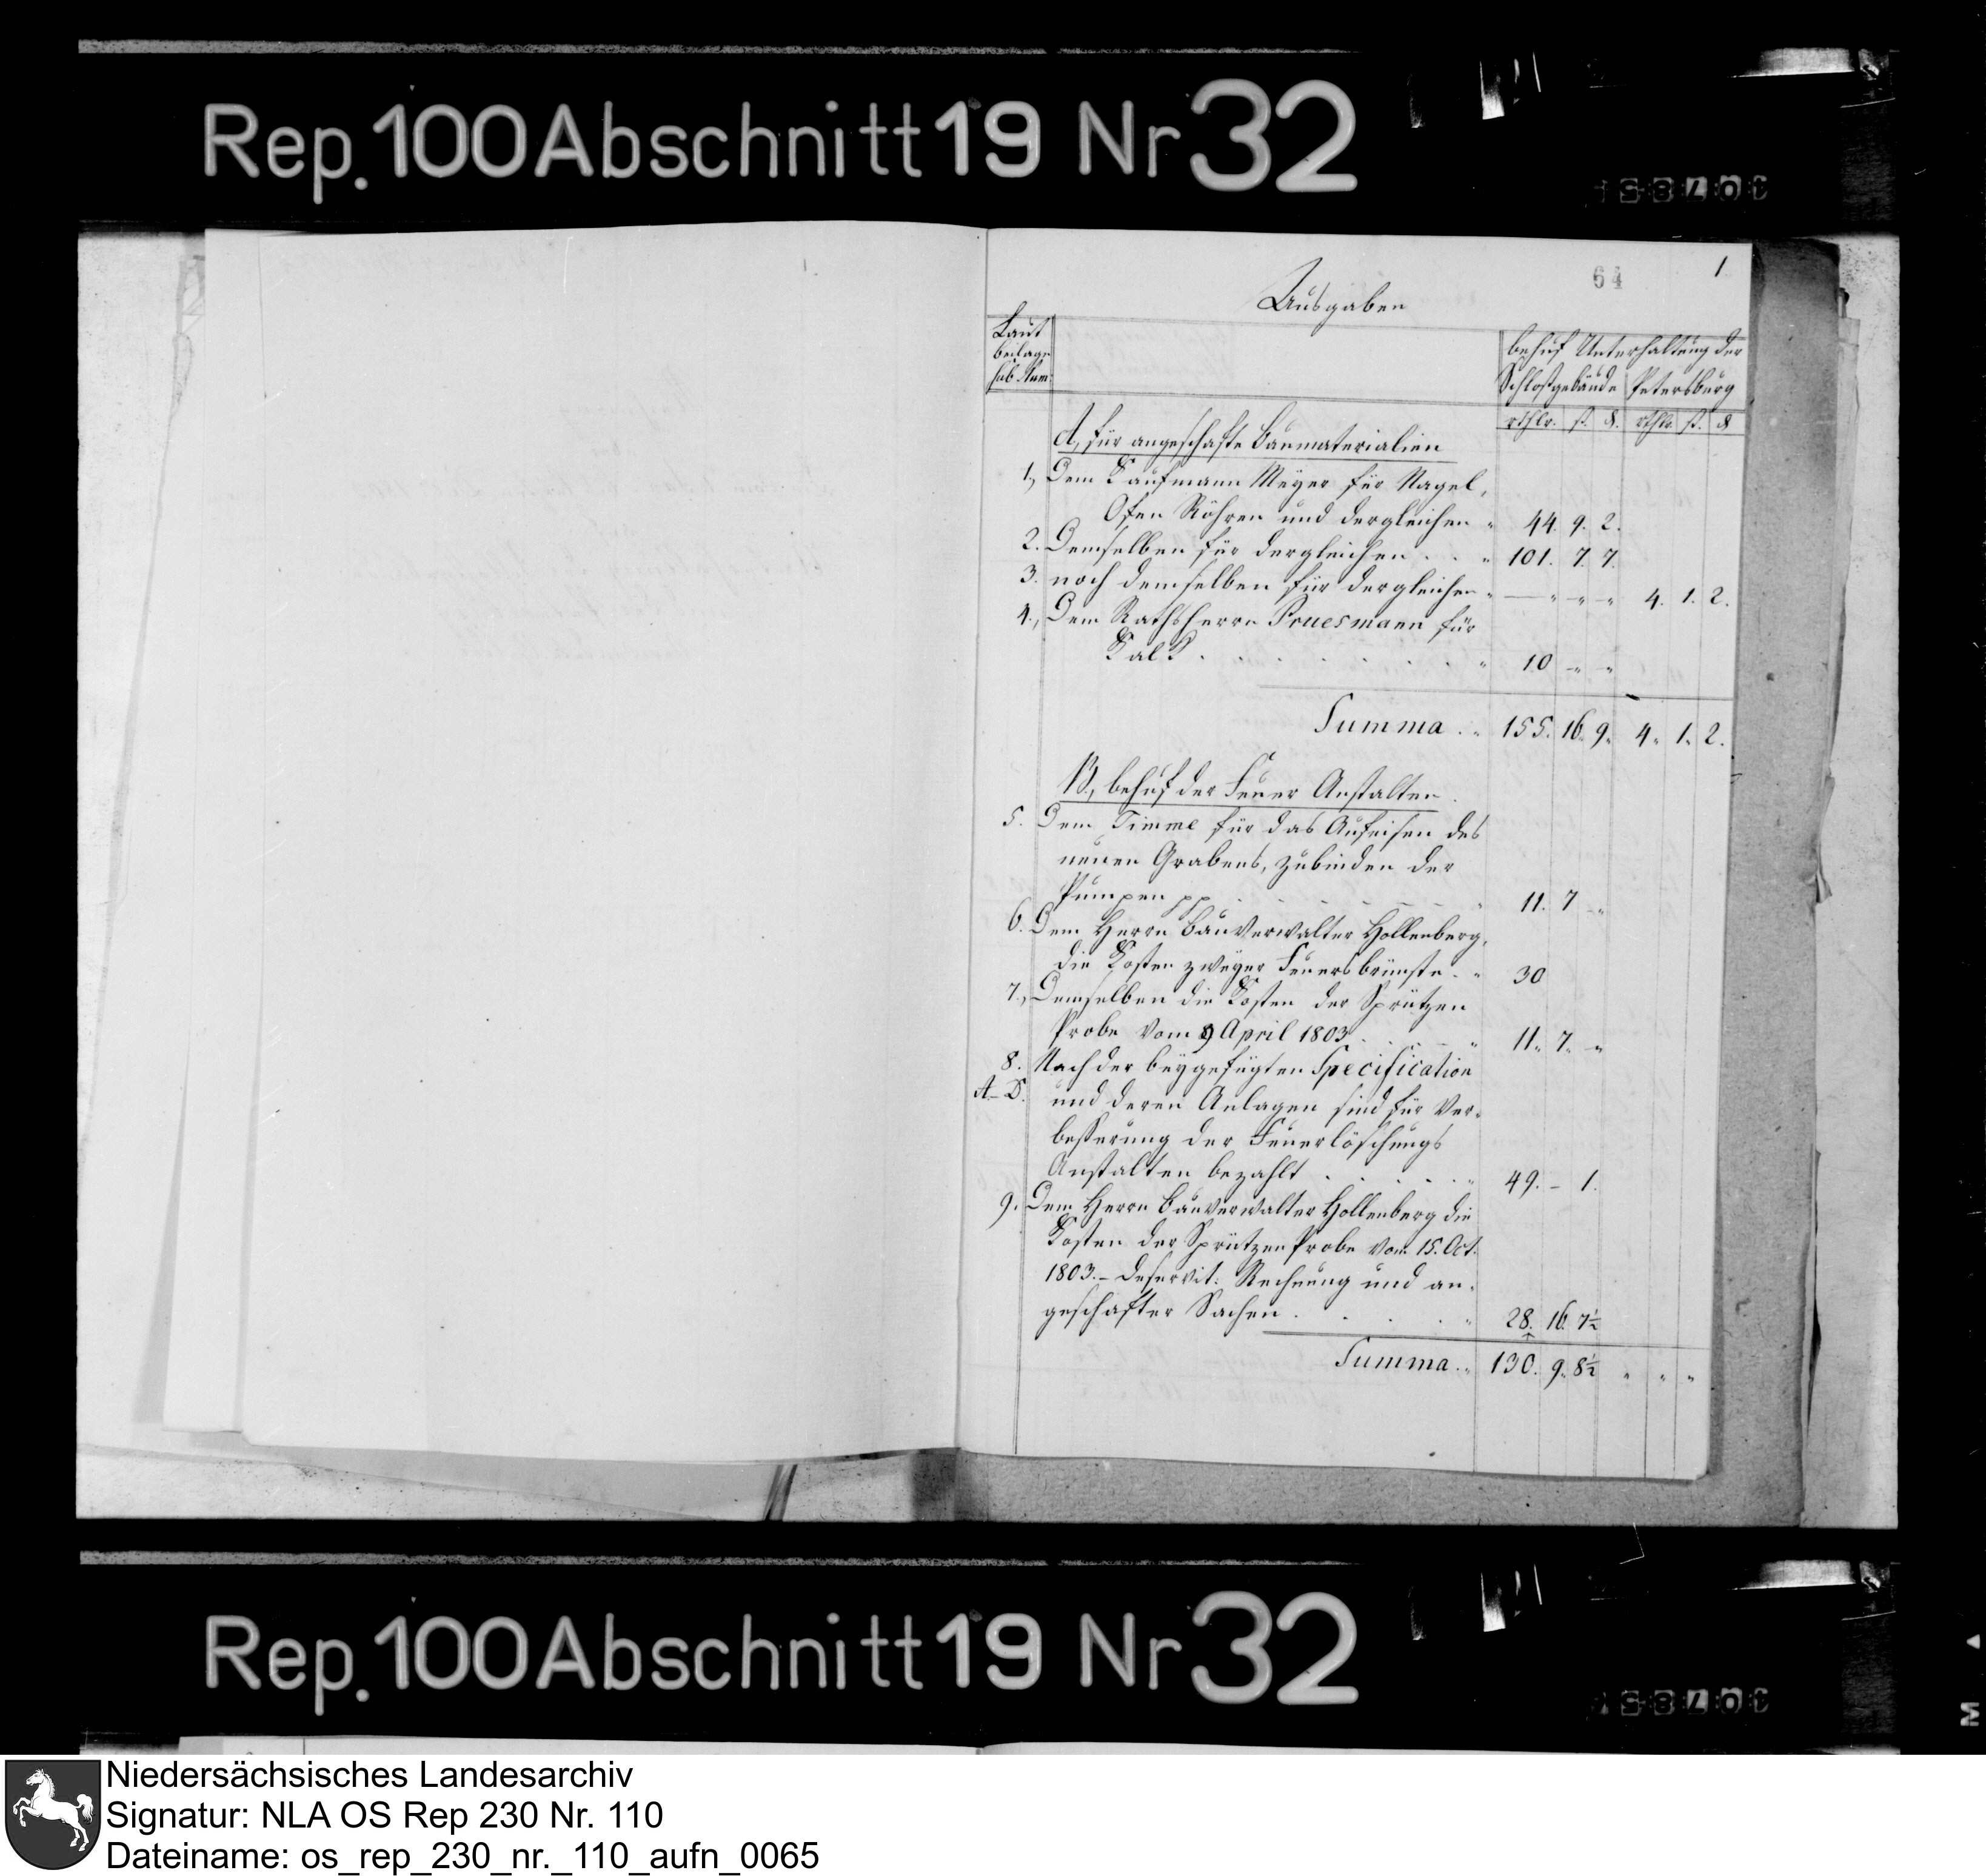 Rep. 100 Abschnitt 19 Nr 32
64
1
Ausgaben
Laut
beilage
sub Num:
behuf Unterhaltung der
Schloßgebäude Petersburg
rthlr. ß. ₰. rthlr. ß. ₰
A, für angeschafte Baumaterialien
1., Dem Kaufmann Meyer für Nagel,
Ofen Röhren und dergleichen " 44. 9. 2.
2. Demselben für dergleichen . . " 101. 7. 7.
3. noch demselben für dergleichen " — " " " 4. 1. 2.
4., Dem Rathsherrn Pruesmann für
Kalk . . . . . . . " 10 " "
Summa . " 155. 16. 9. 4. 1. 2.
B., behuf der Feuer Anstalten.
5. Dem Timme für das Aufeisen des
neuen Grabens, zubinden der
Pumpen pp . . . . . . " 11. 7 "
6. Dem Herrn Bauverwalter Hollenberg,
die Kosten zweyer Feuersbrünste . " 30
7., Demselben die Kosten der Sprützen
Probe vom 9 April 1803 . . . . " 11. 7. "
8. Nach der beygefügten Specification
A–D. und deren Anlagen sind für Ver-
beßerung der Feuerlöschungs
Anstalten bezahlt . . . . . " 49. – 1.
9. Dem Herrn Bauverwalter Hollenberg die
Kosten der Sprützen Probe vom 15. Oct.
1803. – Deservit: Rechnung und an-
geschafter Sachen . . . . " 28. 16. 7½
Summa . " 130. 9. 8½ " " "
Rep. 100 Abschnitt 19 Nr 32
M
Niedersächsisches Landesarchiv
Signatur: NLA OS Rep 230 Nr. 110
Dateiname: os_rep_230_nr._110_aufn_0065